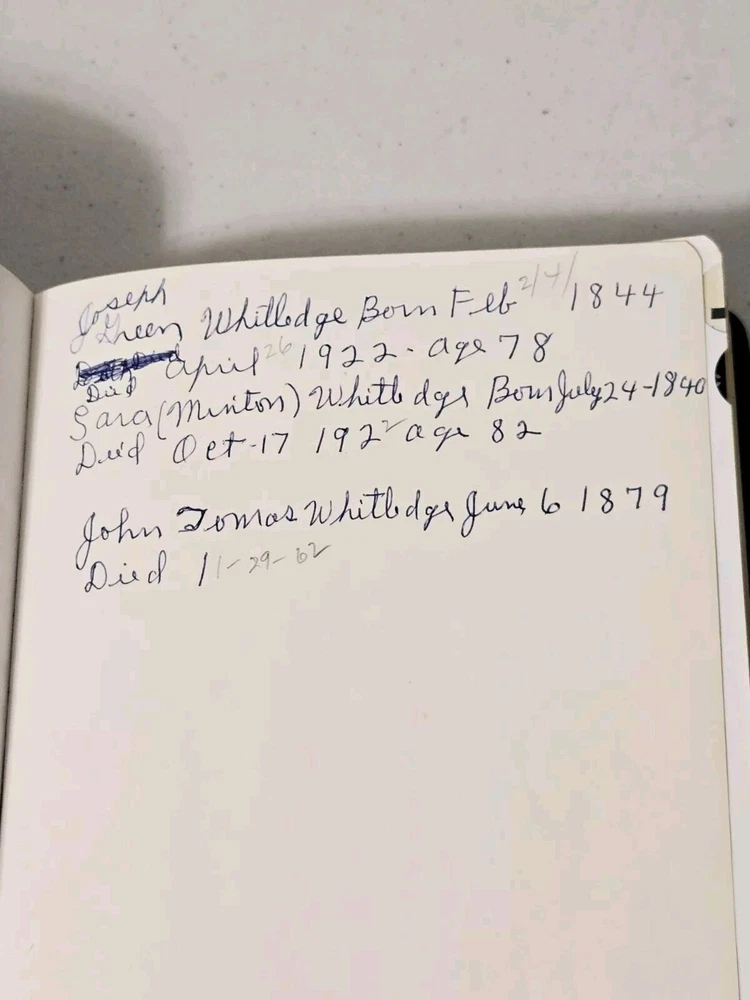 Joseph
Green Whitledge Born Feb 2/4/ 1844
Died April 26 1922 - age 78
Sara (Minton) Whitledge Born July 24-1840
Died Oct-17 1922 age 82
John Tomas Whitledge June 6 1879
Died 11-29-62